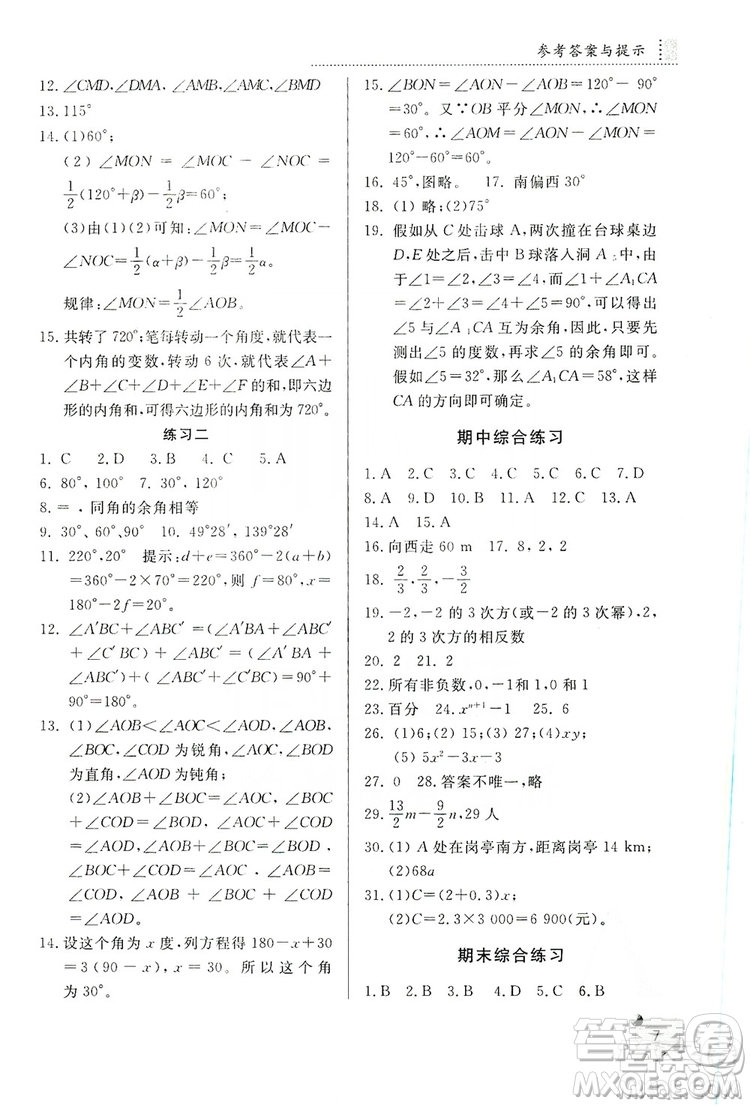 参考答案与提示
12. ∠CMD,∠DMA,∠AMB,∠BMD
13. 115°
14. (1)60°;
(2) ∠MON = ∠MOC − ∠NOC =
1/2(120°+β)−1/2β=60°;
(3)由(1)(2)可知:∠MON=∠MOC−∠NOC
=1/2(α+β)−1/2β=1/2α.
规律:∠MON=1/2∠AOB.
15. 共转了720°;笔每转动一个角度,就代表
一个内角的变数,转动6次,就代表∠A+
∠B+∠C+∠D+∠E+∠F的和,即六边
形的内角和,可得六边形的内角和为720°.
练习二
1. C 2. D 3. B 4. C 5. A
6. 80°,100° 7. 30°,120°
8. =,同角的余角相等
9. 30°、60°、90° 10. 49°28′,139°28′
11. 220°,20° 提示:d+e=360°−2(a+b)
=360°−2×70°=220°,则f=80°,x=
180°−2f=20°.
12. ∠A′BC+∠ABC′=(∠A′BA+∠ABC)
+∠ABC′=∠A′BA+(∠ABC+
∠ABC′)=∠A′BA+∠C′BC=90°+
90°=180°.
13. (1)∠AOB<∠AOC<∠AOD,∠AOB,
∠BOC,∠COD为锐角,∠AOC,∠BOD
为直角,∠AOD为钝角;
(2)∠AOB+∠BOC=∠AOC,∠BOC
+∠COD=∠BOD,∠AOD−∠AOB=
∠BOD,∠AOD−∠BOD=∠AOB,
∠BOC+∠COD=∠BOD,∠AOC+
∠COD=∠AOD,∠AOB+∠BOD=
∠AOD.
14. 设这个角为x度,列方程得180−x+30
=3(90−x),x=30. 所以这个角
为30°.
15. ∠BON=∠AON−∠AOB=120°−90°
=30°. 又∵OB平分∠MON,∴∠MON=
60°,∴∠AOM=∠AON−∠MON=
120°−60°=60°.
16. 45°,图略. 17. 南偏西30°
18. (1)略;(2)75°
19. 假如从C处击球A,两次撞在台球桌边
D、E处之后,击中B球落入洞A₁中,由
于∠1=∠2,∠3=∠4,而∠1+∠A₁CA
=∠2+∠3=∠4+∠5=90°,可以得出
∠5与∠A₁CA互为余角,因此,只要先
测出∠5的度数,再求∠5的余角即可.
假如∠5=32°,那么∠A₁CA=58°,这样
CA的方向即可确定.
期中综合练习
1. A 2. C 3. C 4. C 5. C 6. C 7. C
8. A 9. A 10. C 11. C 12. D 13. C
14. A 15. A
16. 向西走60 m 17. 8,2,2
18. 2/3,2/3,−3/2
19. −2,−2的3次方(或−2的3次幂),−2
的3次方的相反数
20. 2 21. 2
22. 所有非负数,0,−1和0,1和0,−1
23. 百分 24. xⁿ⁺¹−1 25. 6
26. (1)6;(2)15;(3)2a;(4)xy;
(5)5x²−3x−3
27. 0 28. 答案不唯一,略
29. 13/2m−9/2n,29人
30. (1)A处在岗亭南方,距离岗亭14 km;
(2)68a
31. (1)C=(2+0.3)x;
(2)C=2.3×3 000=6 900(元).
期末综合练习
1. B 2. D 3. A 4. C 5. C 6. B
7
答案圈